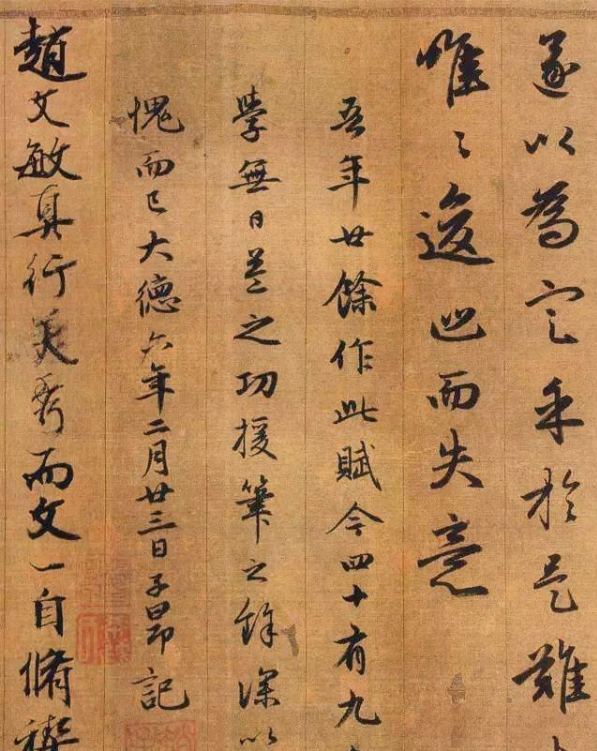 遂以為定乎於是難
唯〻逡巡而失意
吾年廿餘作此賦今四十有九
學無日益之功援筆之餘深以
愧而已大德六年二月廿三日子昂記
趙文敏真行美秀而文一自脩禊